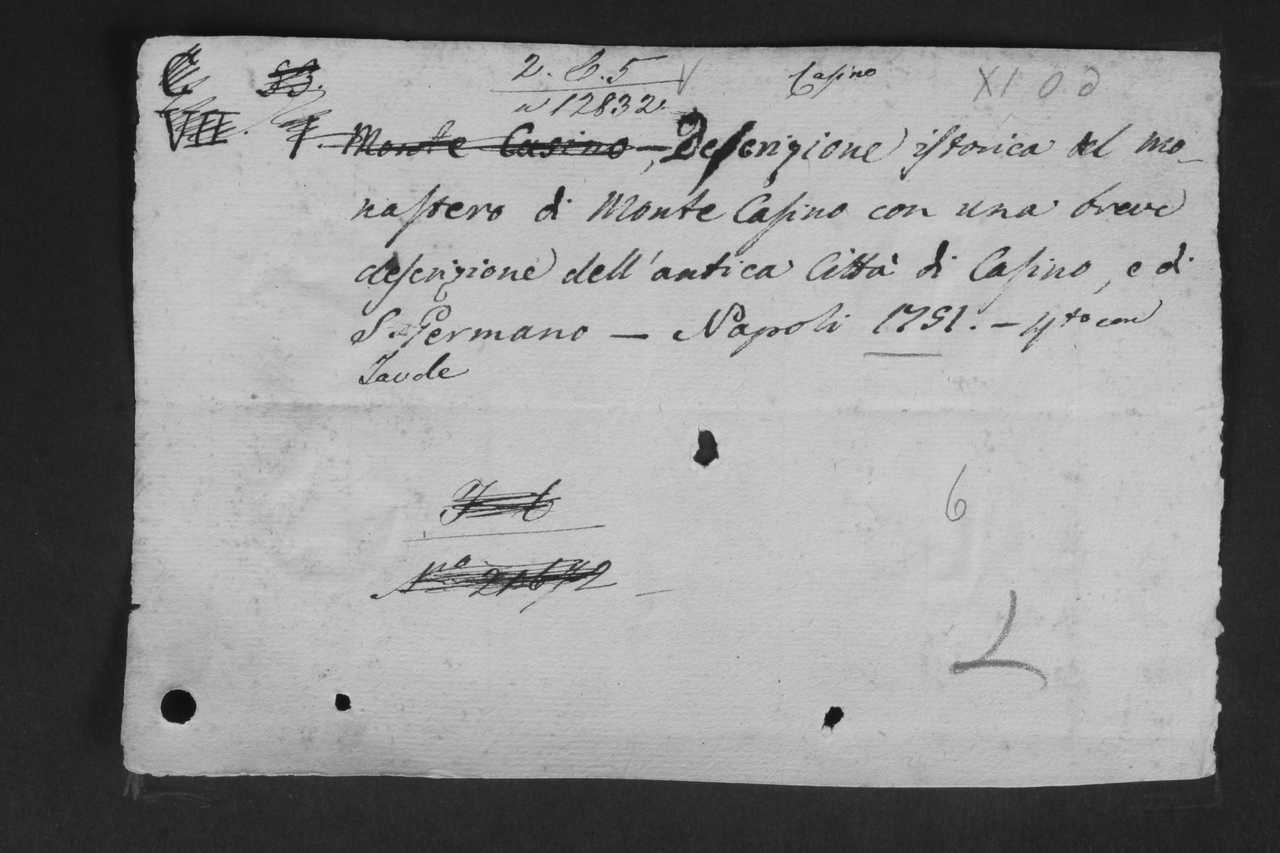 2. E. 5
Casino
XI 0 d
n 12832.
VIII F. Monte Casino – Descrizione istorica del mo-
nastero di Monte Casino con una breve
descrizione dell'antica Città di Casino, e di
S. Germano – Napoli 1751. – 4to con
Tavole
6
No 21672